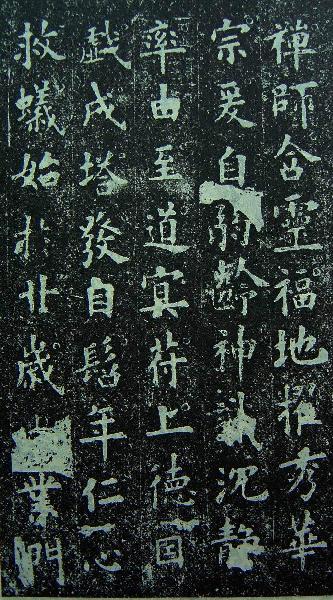 禪師含靈福地擢秀華
宗爰自弱齡神識沉靜
率由至道冥苻上德因
戲成塔發自髫年仁心
救蟻始於卝歲業門